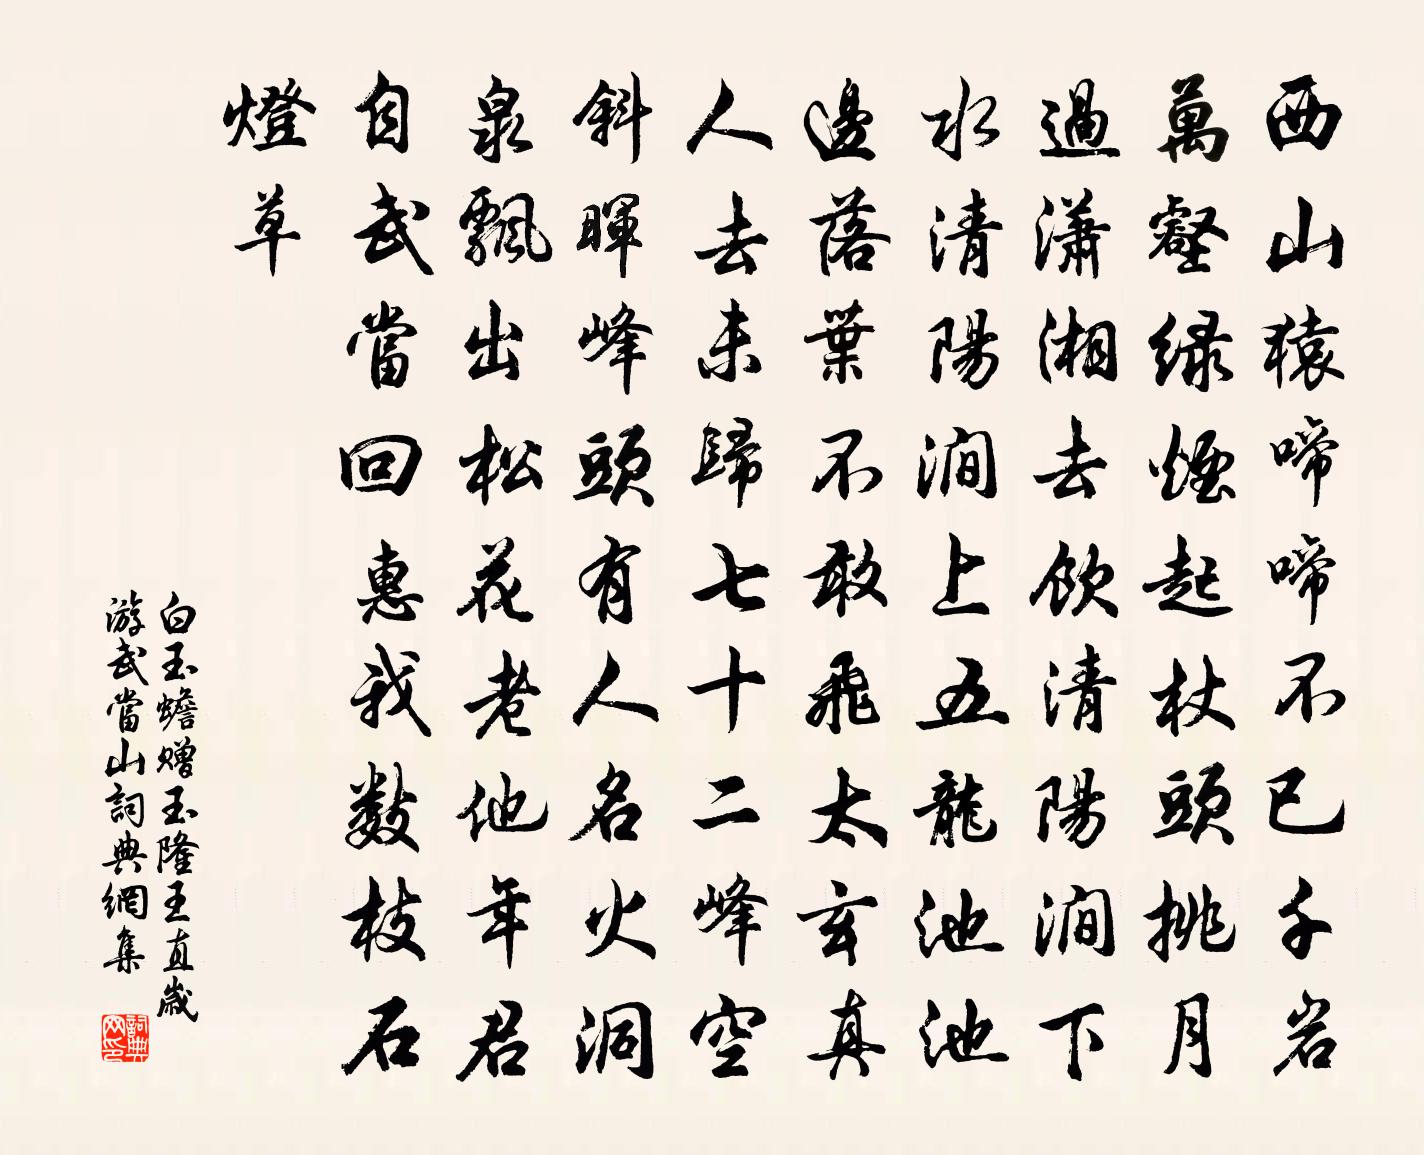 西山猿啼啼不已千岩
萬壑緑煙起杖頭挑月
過瀟湘去飲清陽澗下
水清陽澗上五龍池池
邊落葉不敢飛太玄真
人去未歸七十二峰空
斜暉峰頭有人名火洞
泉飄出松花老他年君
自武當回惠我數枝石
燈草
白玉蟾赠玉隆王直歲
游武當山詞典網集
詞典網印